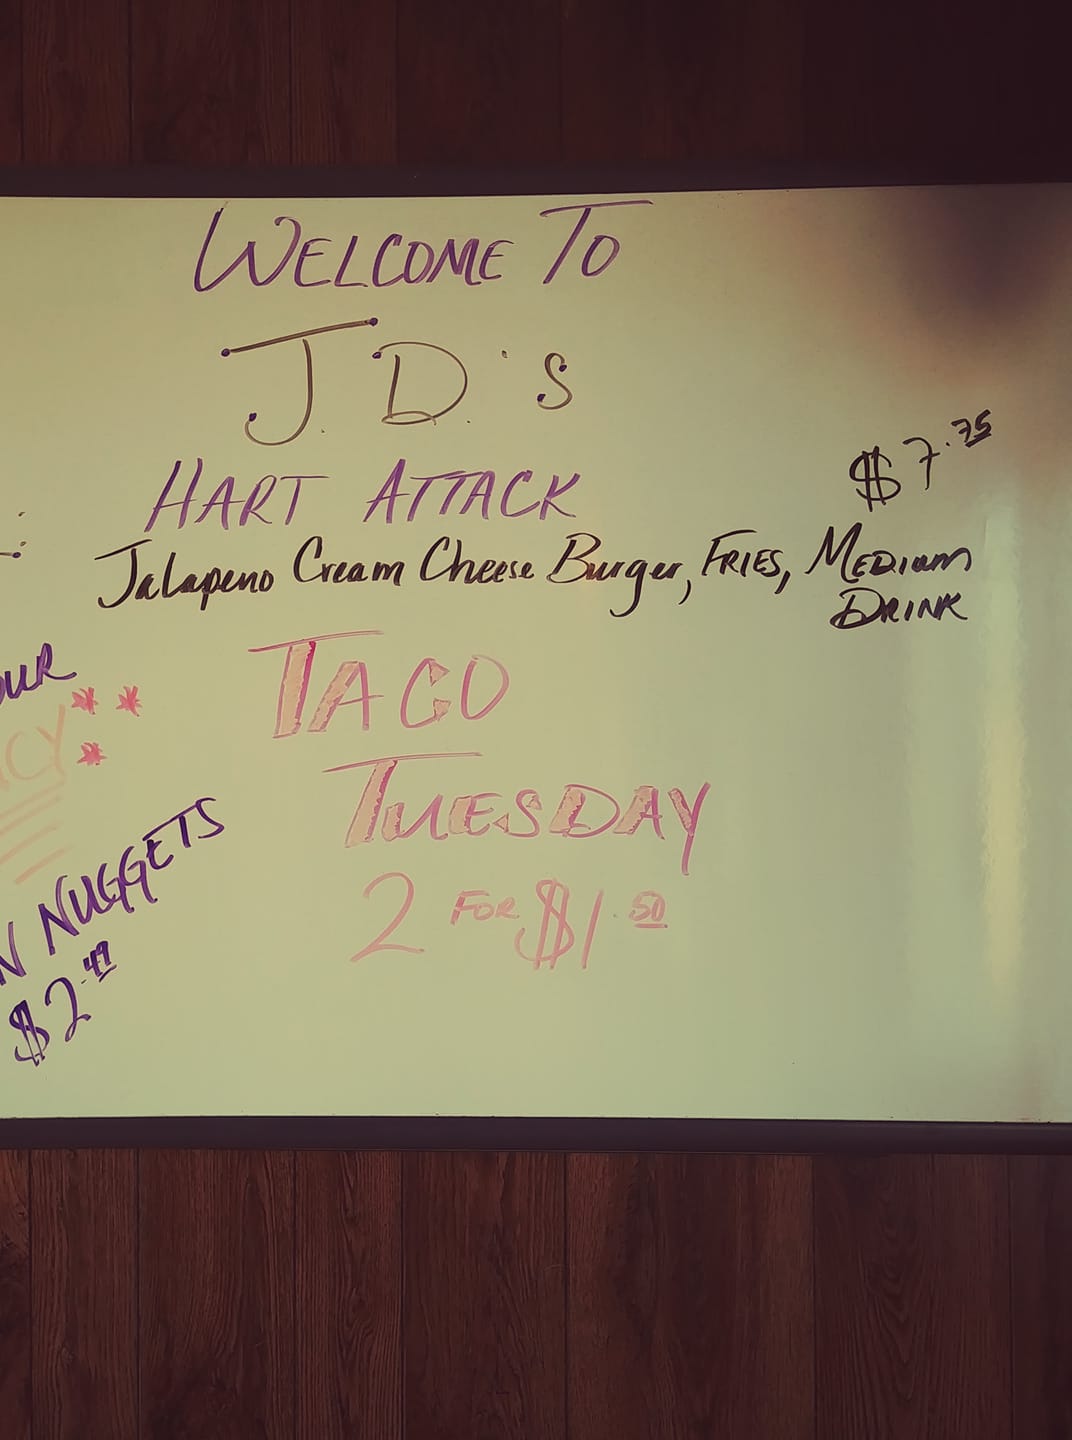 WELCOME TO
J.D.'s
HART ATTACK
$7.75
Jalapeno Cream Cheese Burger, FRIES, MEDIUM
DRINK
TACO
TUESDAY
2 FOR $1.50
NUGGETS
$2.49